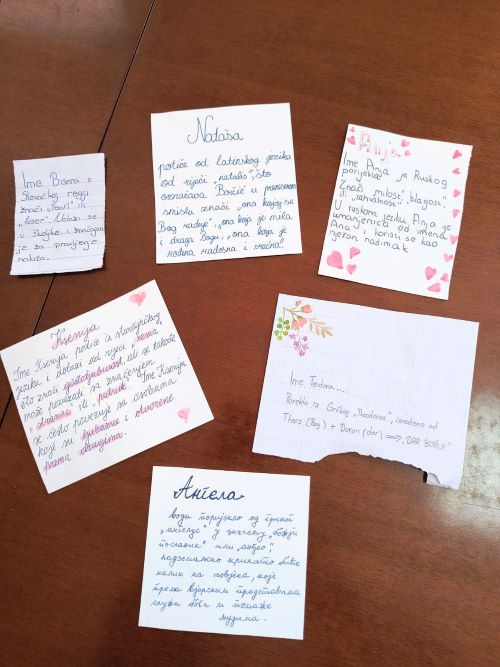 Ime Bisera o
Slavačkoj regiji
znači „Pearl" ili
„biser". Ublazi se
u školjke i značajan
je za pravljenje
nakita.
Nataša
potiče od latinskog jezika
od riječi „natalis", što
označava Božić u prenesenom
smislu znači, „ona kojoj se
Bog raduje", „ona koja je mila
i draga Bogu", „ona koja je
rođena radosna i srećna".
Anja
Ime Anja je Ruskog
porijekla.
Znači „milost", „blagost",
„zahvalnost".
U ruskom jeziku Anja je
umanjenica od imena
Ana i koristi se kao
njezan nadimak
Ksenija
Ime Ksenija potiče iz starogrčkog
jezika i dolazi od riječi „xenia",
što znači gostoljubivost, ali se takođe
može povezati sa značenjem
„stranac" ili „putnik". Ime Ksenija
se često povezuje sa osobama
koje su ljubazne i otvorene
prema drugima.
Ime Teodora ...
Poreklo iz Grčkog „Theodoros", izvedeno od
Theos (Bog) + Doron (dar) ⟹ „DAR BOŽIJI"
Ангела
води поријекло од грчког
„ангелус" у значењу „божји
посланик" или „анђео",
надземаљско крилато биће
налик на човјека, које
према вјерским представама
служи богу и помаже
људима.